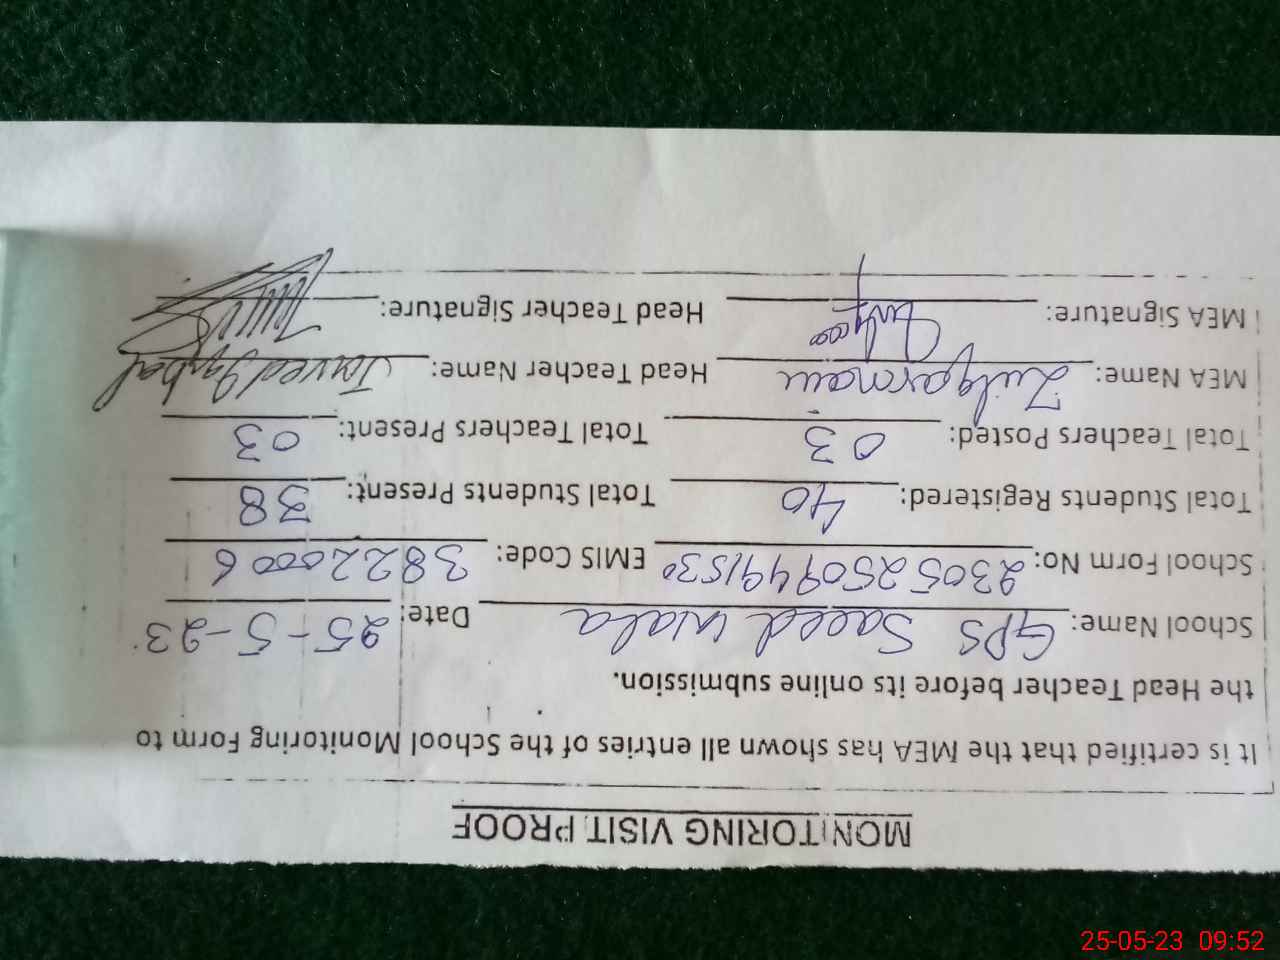 MONITORING VISIT PROOF
It is certified that the MEA has shown all entries of the School Monitoring Form to
the Head Teacher before its online submission.
School Name: GPS Saeed Wala Date: 25-5-23
School Form No: 23052509449153 EMIS Code: 38220006
Total Students Registered: 40 Total Students Present: 38
Total Teachers Posted: 03 Total Teachers Present: 03
MEA Name: Zulqarnain Head Teacher Name: Javed Iqbal
MEA Signature: Head Teacher Signature:
25-05-23 09:52